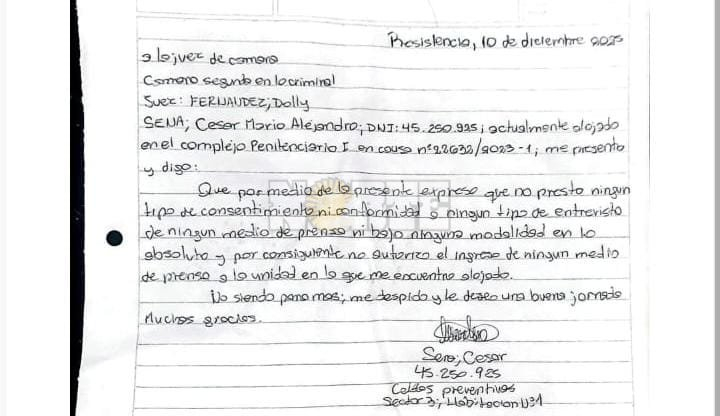 Resistencia, 10 de diciembre 2025
a la juez de camara
Camara segunda en lo criminal
Suez: FERNAUDEZ; Dolly
SENA; Cesar Mario Alejandro; DNI: 45.250.925; actualmente alojado
en el complejo Penitenciario I en causa nº22632/2023-1; me presento
y digo:
Que por medio de la presente expreso que no presto ningun
tipo de consentimiento ni conformidad a ningun tipo de entrevista
de ningun medio de prensa ni bajo ninguna modalidad en lo
absoluto y por consiguiente no autorizo el ingreso de ningun medio
de prensa a la unidad en la que me encuentro alojado.
No siendo para mas; me despido y le deseo una buena jornada
Muchas gracias.
Sena; Cesar
45.250.925
Celdas preventivas
Sector 3; Habitacion U31